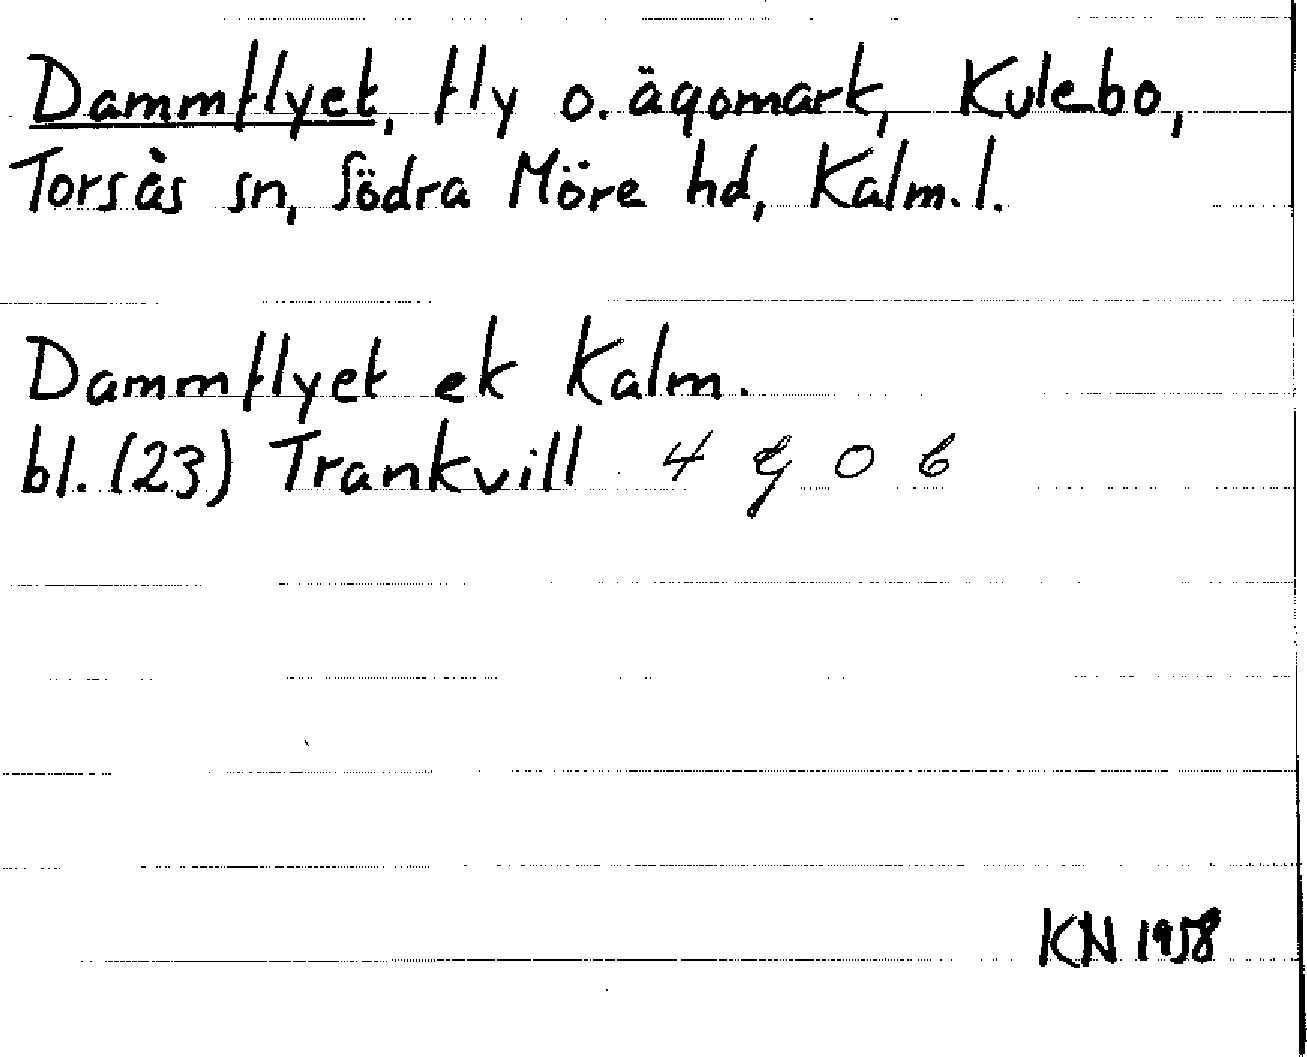 Dammflyet, fly o. ägomark, Kulebo,
Torsås sn, Södra Möre hd, Kalm. l.
Dammflyet ek Kalm.
bl. (23) Trankvill 4 g 0 6
KN 1958